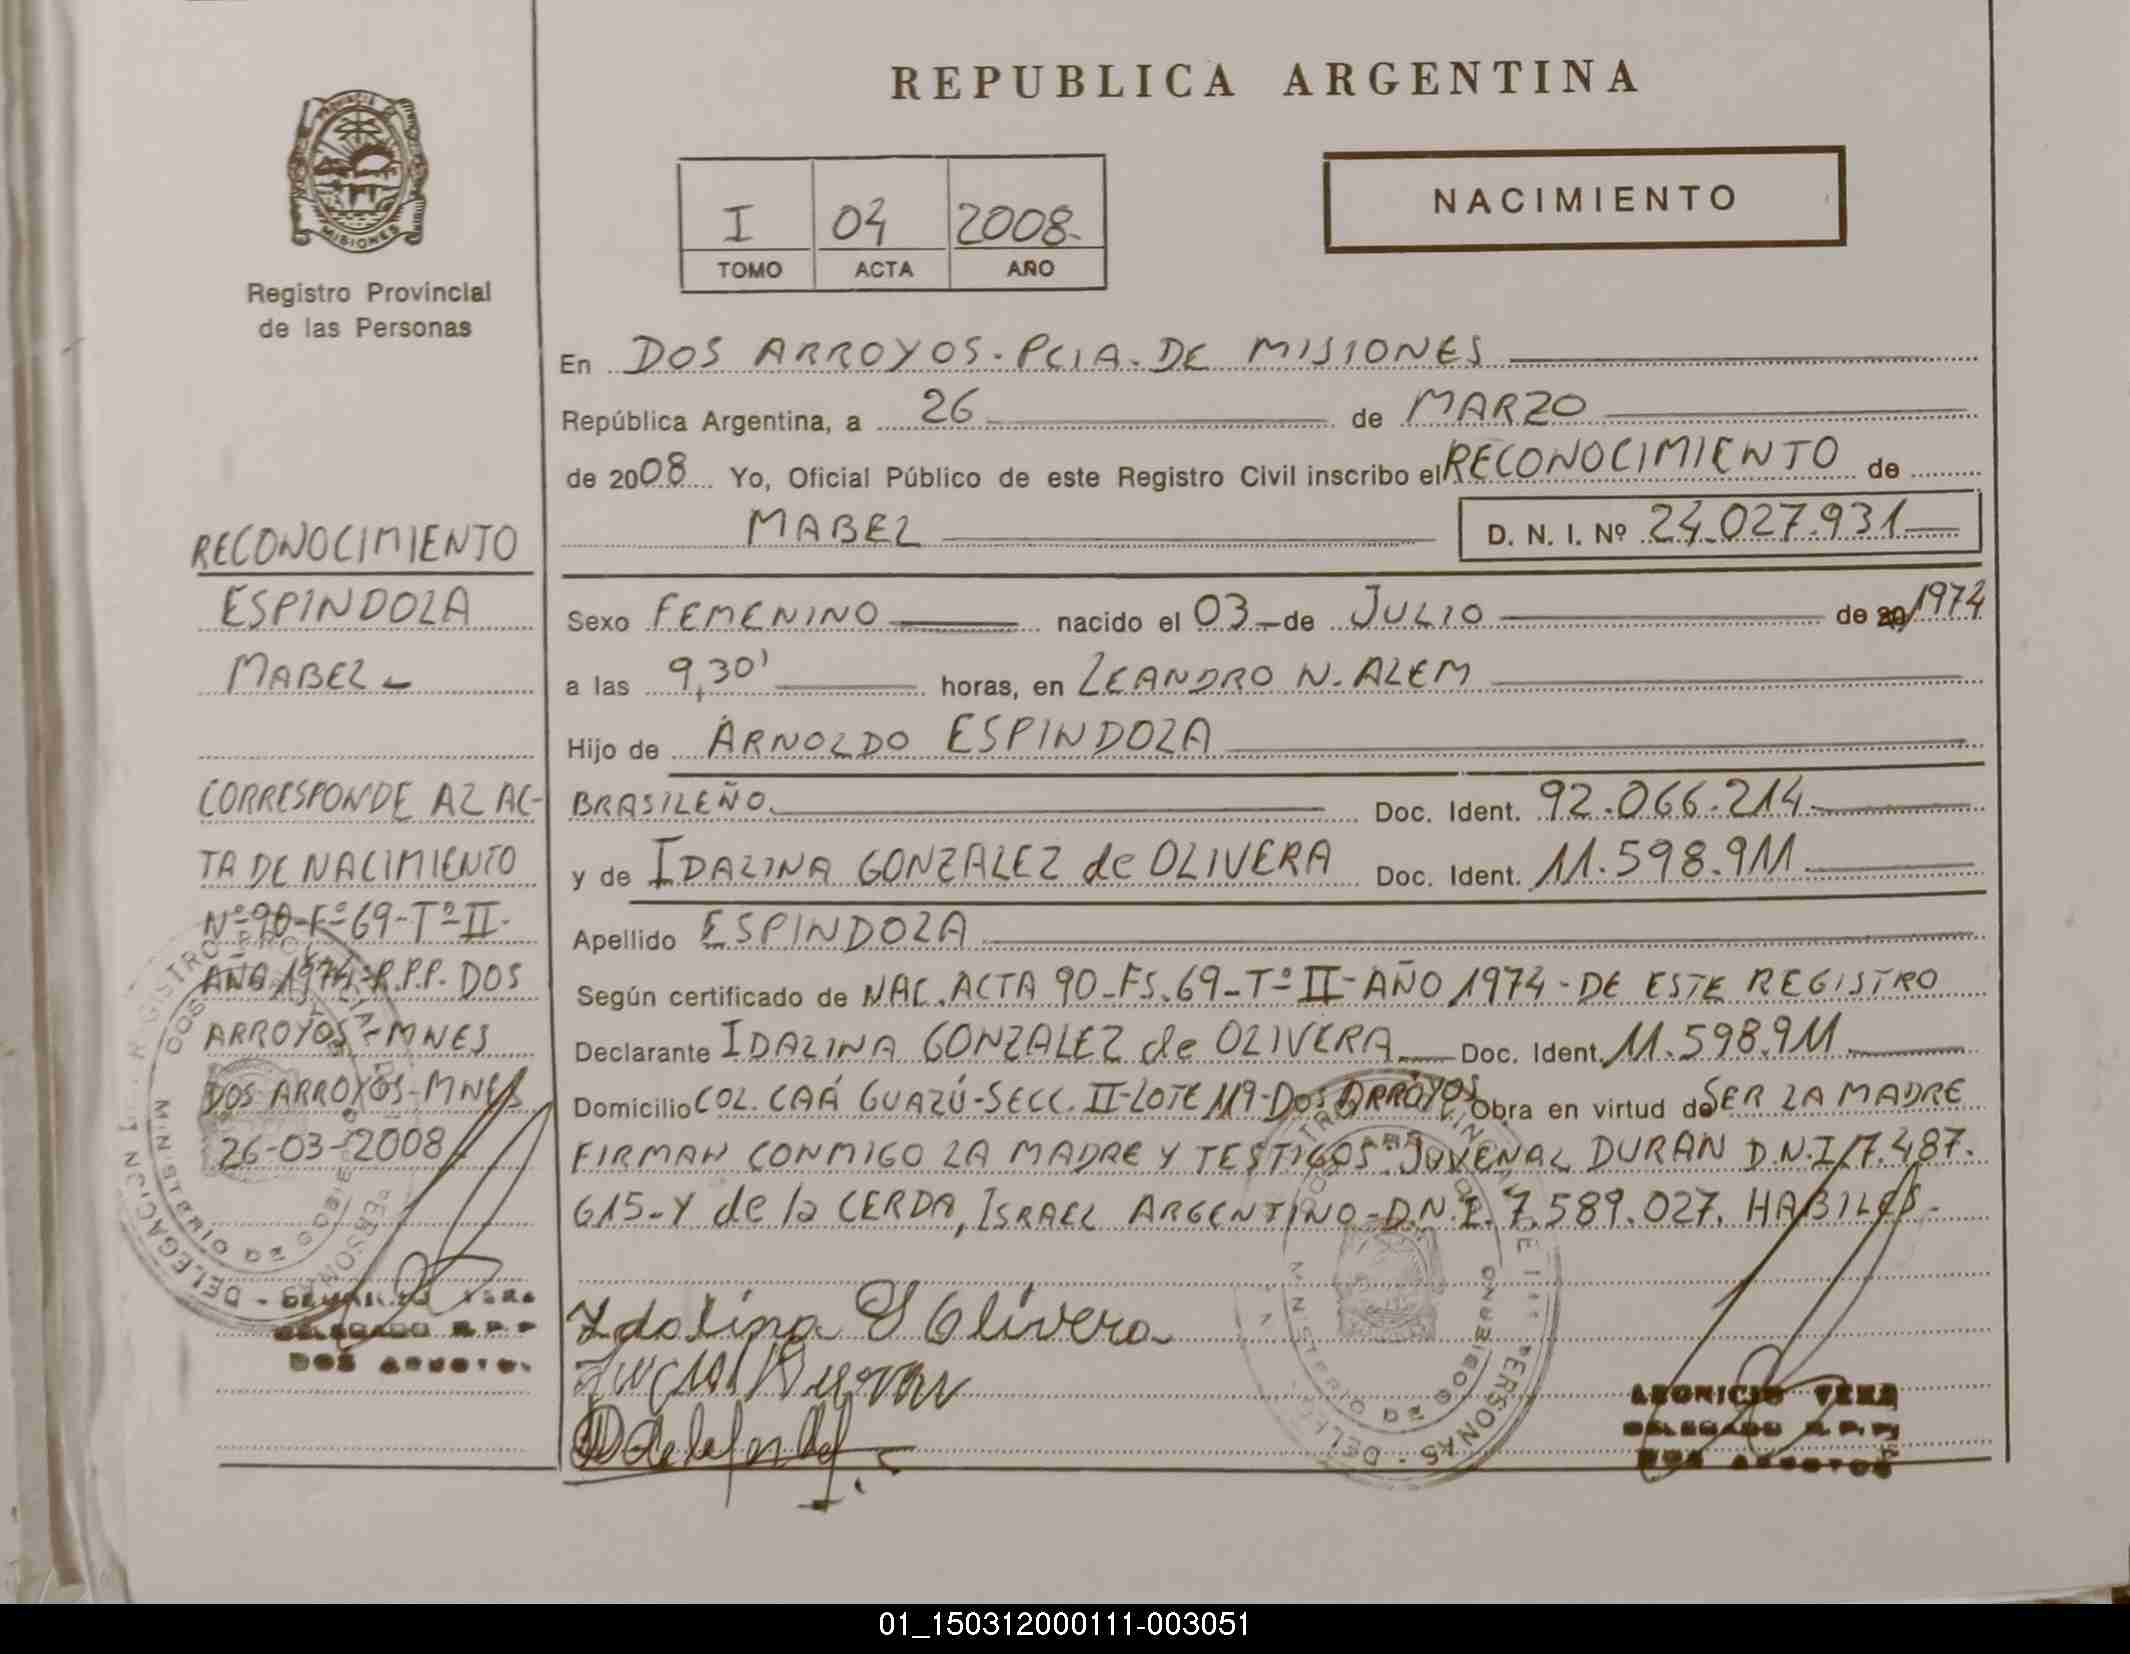 REPUBLICA ARGENTINA
NACIMIENTO
I 04 2008.
TOMO ACTA AÑO
MISIONES
Registro Provincial
de las Personas
RECONOCIMIENTO
ESPINDOLA
MABEL
CORRESPONDE AL AC-
TA DE NACIMIENTO
Nº 90-Fº 69-Tº II-
AÑO 1974-R.P.P. DOS
ARROYOS-MNES
DOS ARROYOS-MNES
26-03-2008
DELEGADO R.P.P
DOS ARROYOS
En DOS ARROYOS. PCIA. DE MISIONES
República Argentina, a 26 de MARZO
de 2008 Yo, Oficial Público de este Registro Civil inscribo el RECONOCIMIENTO de
MABEL D. N. I. Nº 24.027.931
Sexo FEMENINO nacido el 03 de JULIO de 20/1974
a las 9,30' horas, en LEANDRO N. ALEM
Hijo de ARNOLDO ESPINDOLA
BRASILEÑO. Doc. Ident. 92.066.214
y de IDALINA GONZALEZ de OLIVERA Doc. Ident. 11.598.911
Apellido ESPINDOLA
Según certificado de NAC. ACTA 90-FS.69-Tº II-AÑO 1974-DE ESTE REGISTRO
Declarante IDALINA GONZALEZ de OLIVERA Doc. Ident. 11.598.911
Domicilio COL. CAÁ GUAZÚ-SECC. II-LOTE 119-DOS ARROYOS Obra en virtud de SER LA MADRE
FIRMAN CONMIGO LA MADRE Y TESTIGOS: JUVENAL DURAN D.N.I. 7.487.
615-Y de la CERDA, ISRAEL ARGENTINO-D.N.I. 7.589.027. HABILES-
Idalina G Olivera
LEONICIO VERA
DELEGADO R.P.P
DOS ARROYOS
01_150312000111-003051